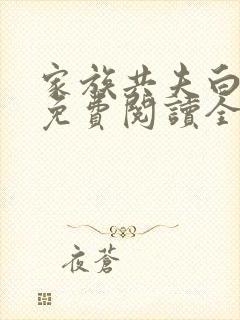 家族共夫白
免費閱讀全
夜蒼